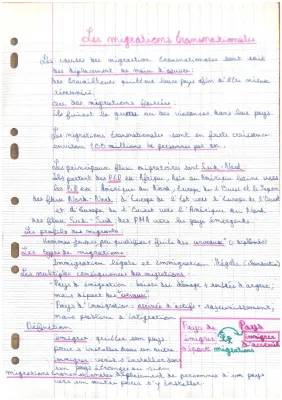 Les migrations transnationales
Les causes des migrations transnationales sont soit
des déplacement de main d'œuvre;
des travailleurs quittent leur pays afin d'être mieux
rémunérer;
ceux des migrations forcées
ils fuient la guerre ou des violences dans leur pays.
Les migrations transnationales sont en forte croissance
environ 100 millions de personnes par an.
Les principaux flux migratoires sont Sud-Nord
Ils partent des PED en Afrique, Asie ou Amérique latine vers
les en Amérique du Nord, Europe de l'Ouest et le Japon
des flux Nord-Nord, d'Europe de l'Est vers l'Europe de l'Ouest
et d'Europe de l'Ouest vers l'Amérique du Nord.
des flux Sud-Sud des PMA vers les pays émergents.
Les profils des migrants
Hommes jeunes peu qualifiés + fuite des cerveaux
Les types de migrations
Immigration légale et immigration illégale (clandestin)
Les multiples conséquences des migrations
Pays d'émigration = baisse du + rentrée d'argent;
mais départ des cerveaux
Pays d'immigration = arrivée d'actifs + rajeunissement,
mais problème d'intégration
Définition
émigrer: quitter son pays
pour s'installer dans un autre
immigrer: venir s'installer dans
un pays étranger au sien
migrations transnationales: déplacement de personnes d'un pays
vers un autre pour s'y installer.
Pays de
émigrer
départ
migrations
Pays
immigrer
d'accueil